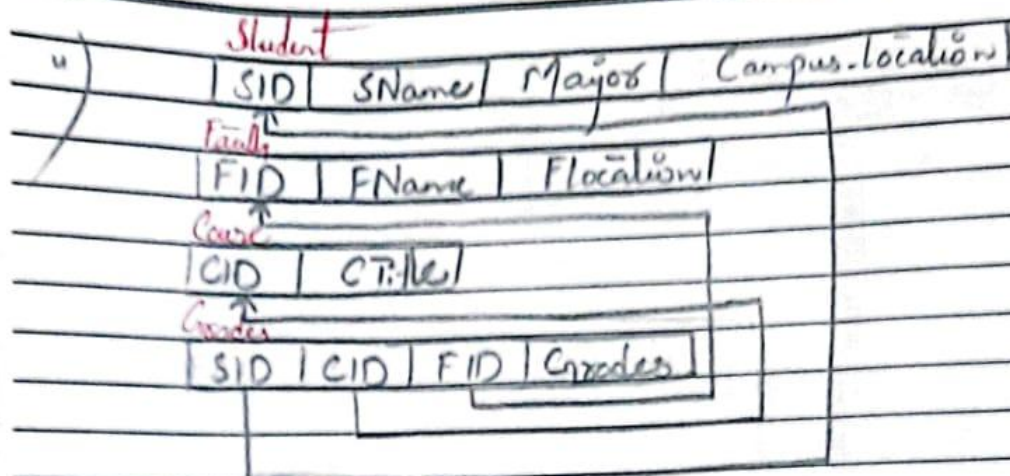 u)
Student
SID SName Major Campus-location
FID FName Flocation
Course
CID CTitle
Grades
SID CID FID Grades